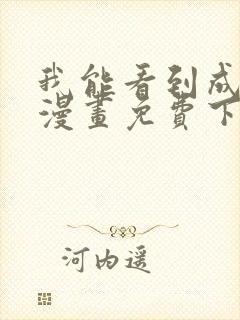 我能看到成
漫畫免費下
河内遥